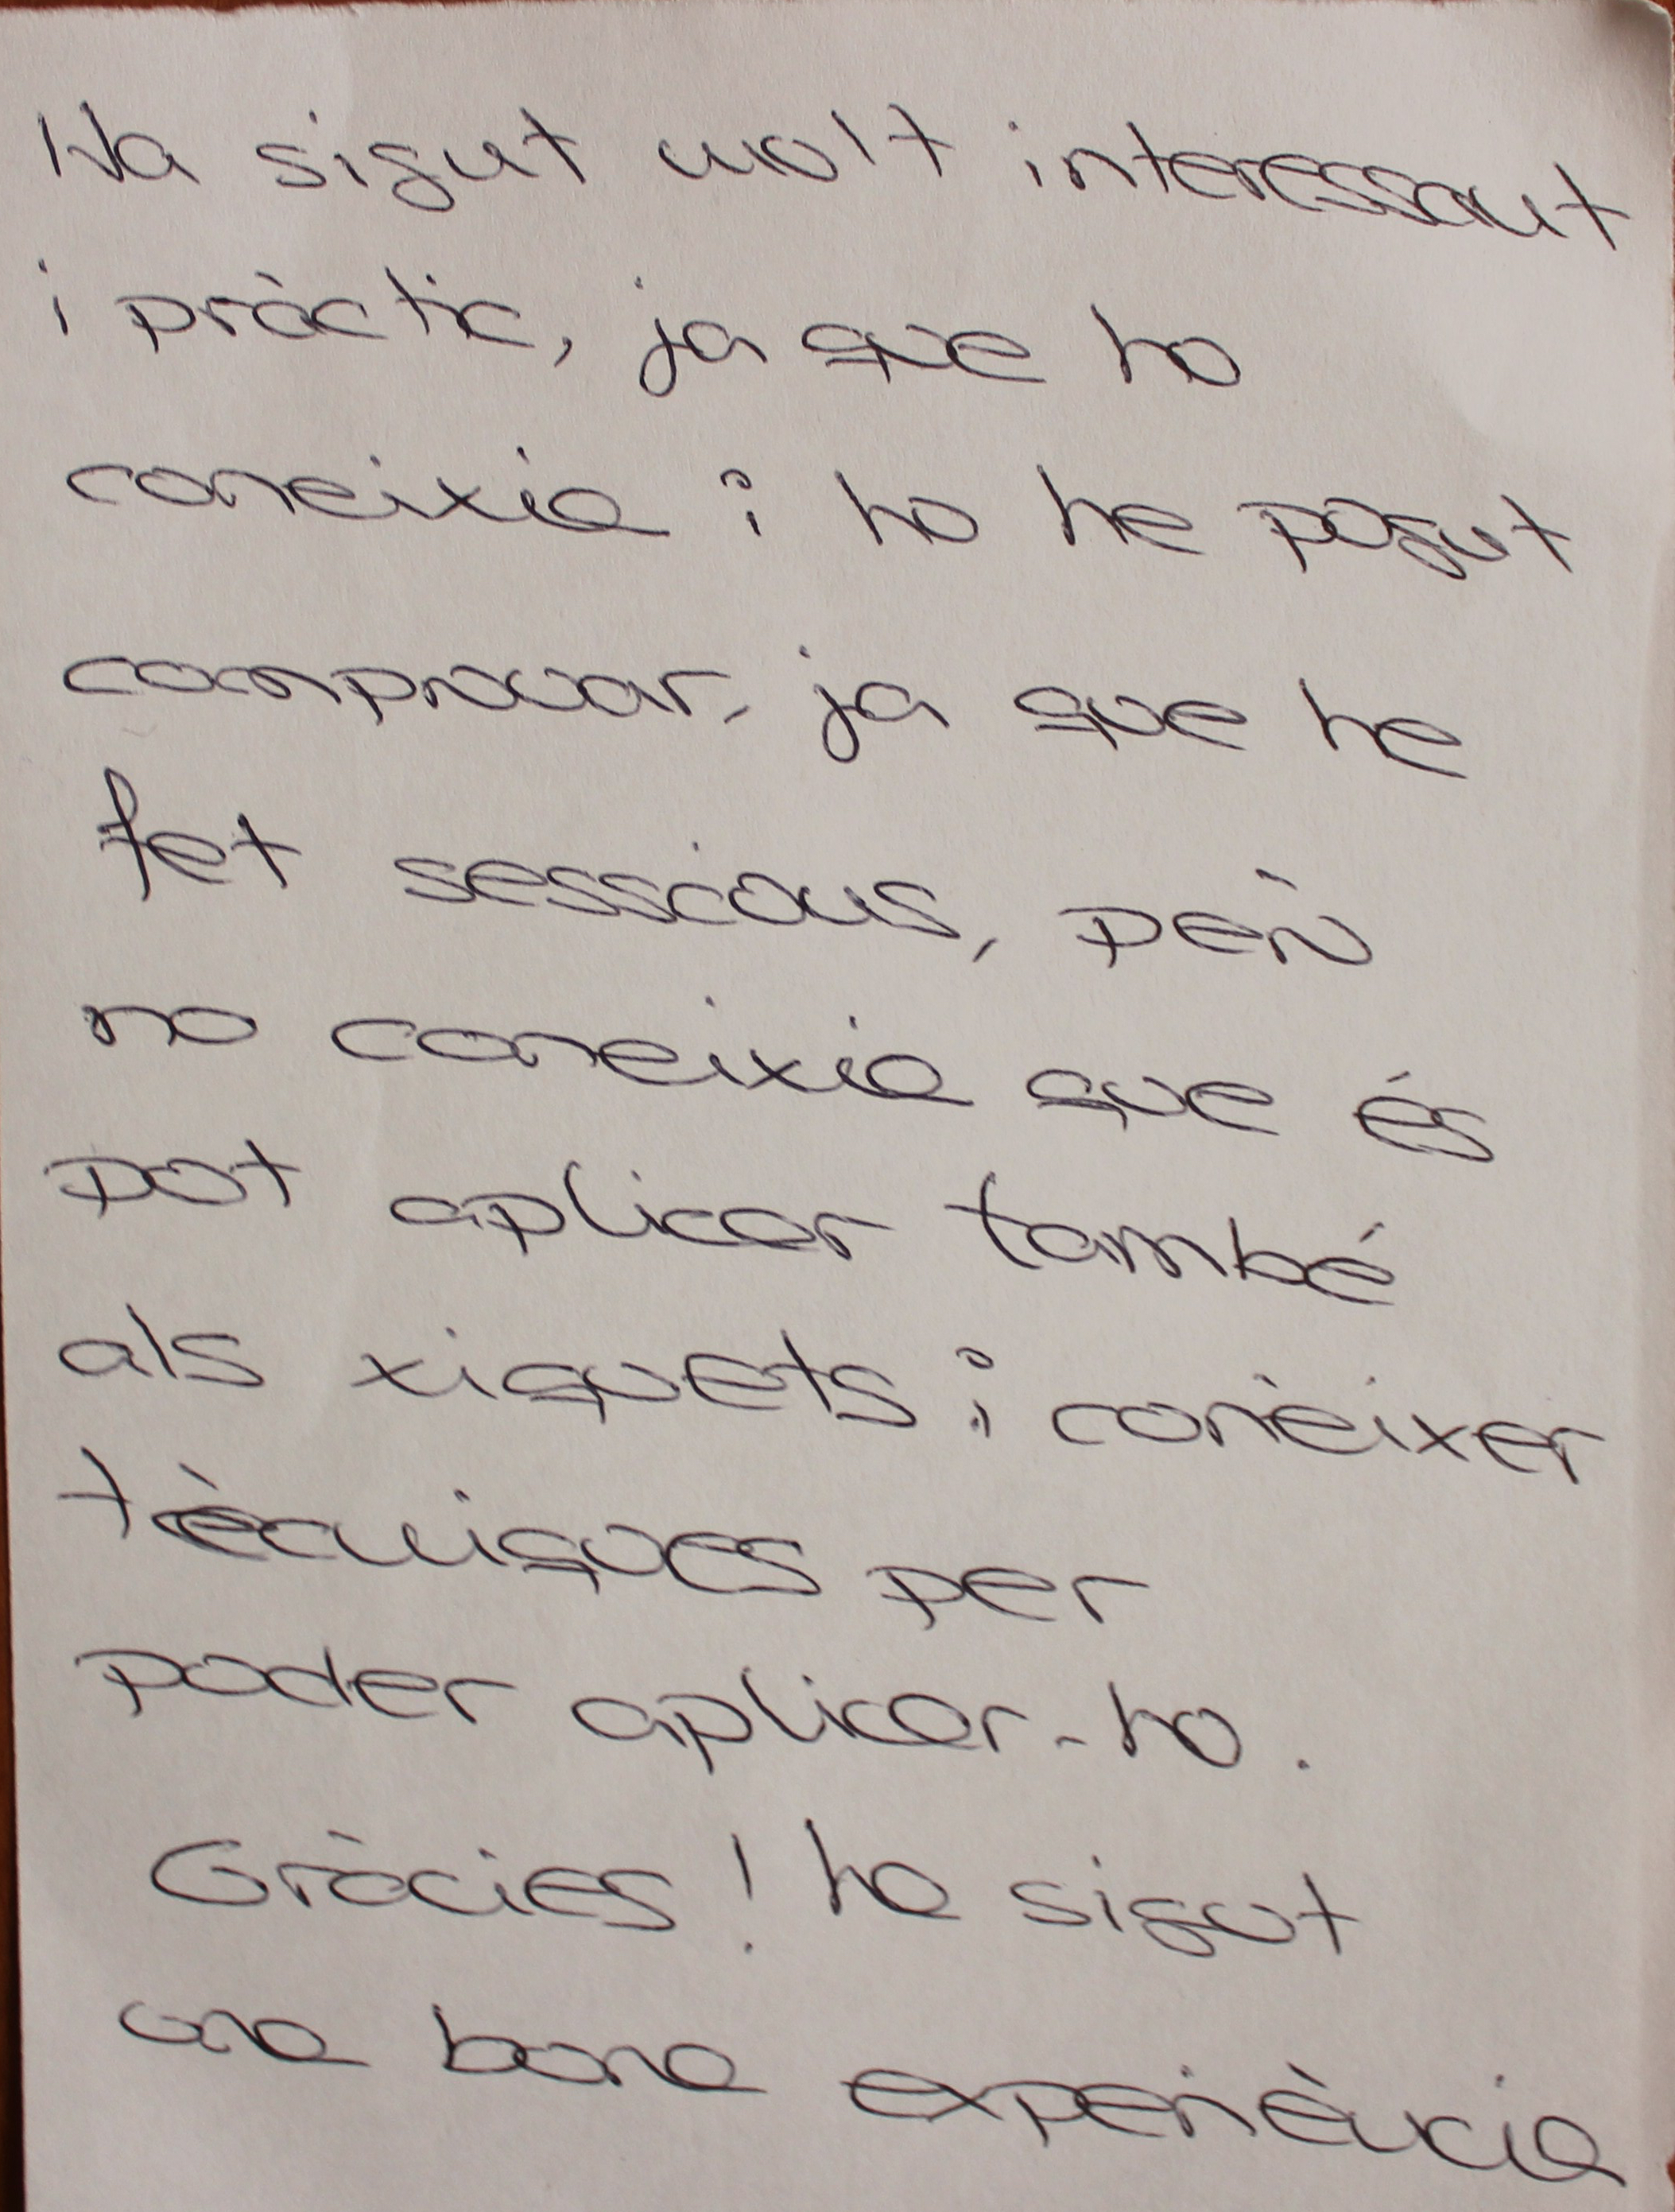 Ha sigut molt interessant
i pràctic, ja que ho
coneixia i ho he pogut
comprovar, ja que he
fet sessions, però
no coneixia que és
pot aplicar també
als xiquets i conèixer
tècniques per
poder aplicar-ho.
Gràcies! ha sigut
una bona experiència